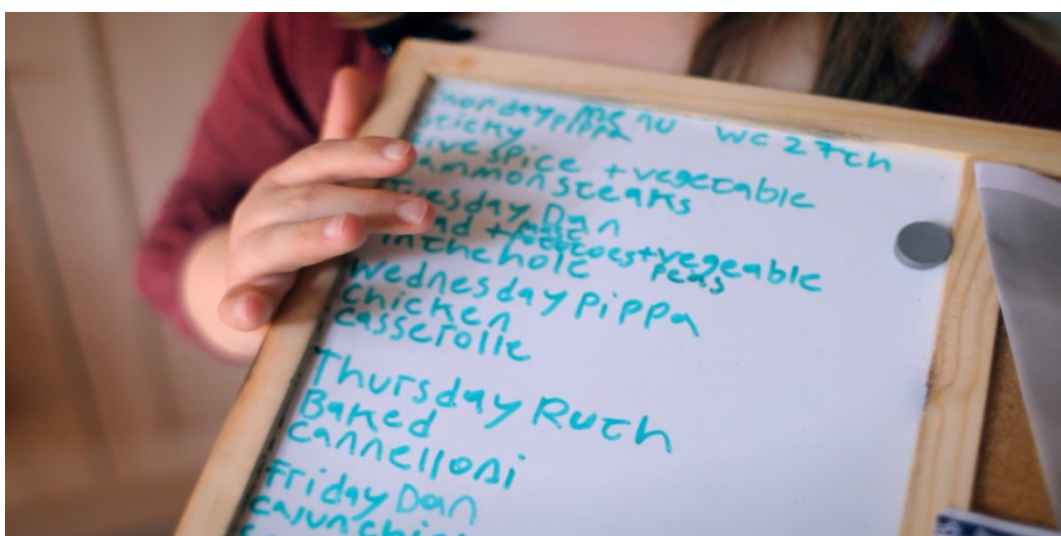 menu wc 27th
monday pippa
sticky
five spice + vegetable
gammon steaks
Tuesday Dan
toad + potatoes + vegeable
in the hole peas
Wednesday pippa
Chicken
casserolle
Thursday Ruth
Baked
cannelloni
Friday Dan
cajun